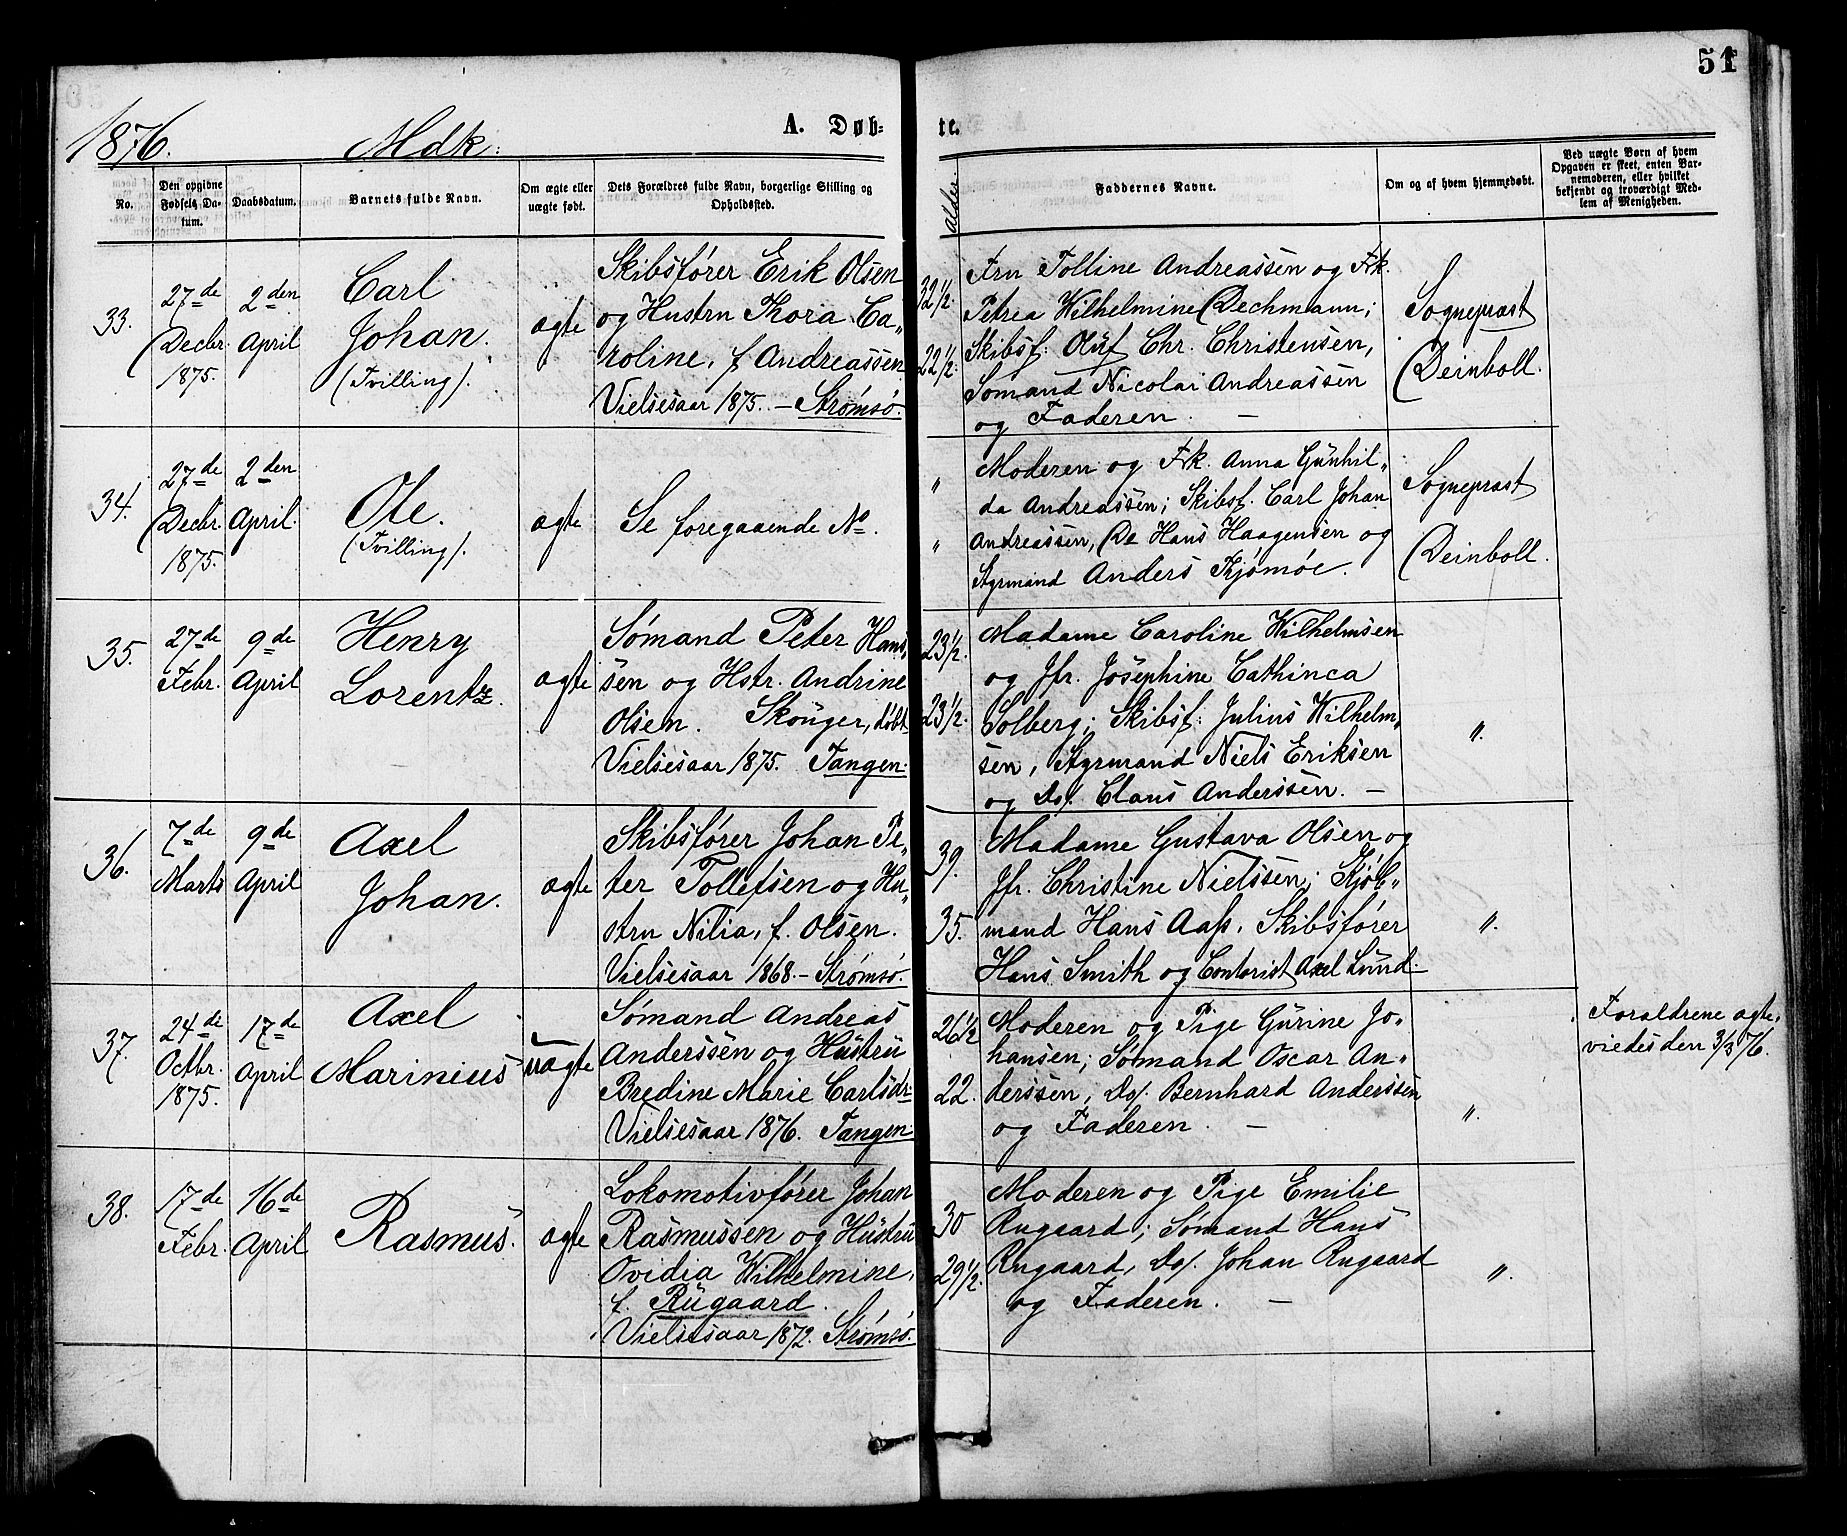 51
1876. Mdk: A. Døb- te.
No.
Den opgivne
Fødsels Da-
tum.
Daabsdatum.
Barnets fulde Navn.
Om ægte eller
uægte født.
Dets Forældres fulde Navn, borgerlige Stilling og
Opholdssted.
Alder.
Faddernes Navne.
Om og af hvem hjemmedøbt.
Ved uægte Børn af hvem
Opgaven er skeet, enten Bar-
nemoderen, eller hvilket
bekjendt og troværdigt Med-
lem af Menigheden.
33.
27de
Decbr.
1875.
2den
April
Carl
Johan.
(Tvilling).
ægte
Skibsfører Erik Olsen
og Hustru Thora Ca„
roline, f Andreassen
Vielsesaar 1875. – Strømsø.
32 1/2.
22 1/2.
Fru Tolline Andreassen og Frk.
Petrea Wilhelmine Dechmann;
Skibsf: Oluf Chr. Christensen,
Sømand Nicolai Andreassen
og Faderen. –
Sognepræst
Deinboll.
34.
27de
Decbr.
1875.
2den
April.
Ole.
(Tvilling).
ægte
Se foregaaende No.
„
„
Moderen og Frk. Anna Gunhil„
da Andreassen; Skibsf. Carl Johan
Andreassen, Do Hans Haagensen og
Styrmand Anders Kjømøe.
Sognepræst
Deinboll.
35.
27de
Febr.
9de
April
Henry
Lorentz.
ægte
Sømand Peter Hans„
sen og Hstr. Andrine
Olsen. Skouger, døbt
Vielsesaar 1875. Tangen.
23 1/2.
23 1/2.
Madame Caroline Wilhelmsen
og Jfr. Josephine Cathinca
Solberg; Skibsf: Julius Wilhelm„
sen, Styrmand Niels Eriksen
og Do/. Claus Anderssen. –
„.
36.
7de
Marts
9de
April
Axel
Johan.
ægte
Skibsfører Johan Pe„
ter Tollefsen og Hu„
stru Nilia, f. Olsen.
Vielsesaar 1868. – Strømsø.
39.
35.
Madame Gustava Olsen og
Jfr. Christine Nielssen; Kjøb„
mand Hans Aass, Skibsfører
Hans Smith og Contorist Axel Lund.
„.
37.
24de
Octbr.
1875.
17de
April
Axel
Marinius
uægte
Sømand Andreas
Anderssen og Hustru
Bredine Marie Carlsdr.
Vielsesaar 1876. Tangen.
26 1/2
22.
Moderen og Pige Gurine Jo„
hansen; Sømand Oscar An„
derssen, Do/. Bernhard Anderssen
og Faderen. –
„.
Forældrene ægte„
viedes den 3/3 76.
38.
17de
Febr.
16de
April
Rasmus.
ægte
Lokomotivfører Johan
Rasmussen og Hustru
Ovidia Wilhelmine,
f. Rugaard.
Vielsesaar 1872. Strømsø.
30
29 1/2.
Moderen og Pige Emilie
Rugaard; Sømand Hans
Rugaard, Do/. Johan Rugaard
og Faderen. –
„.